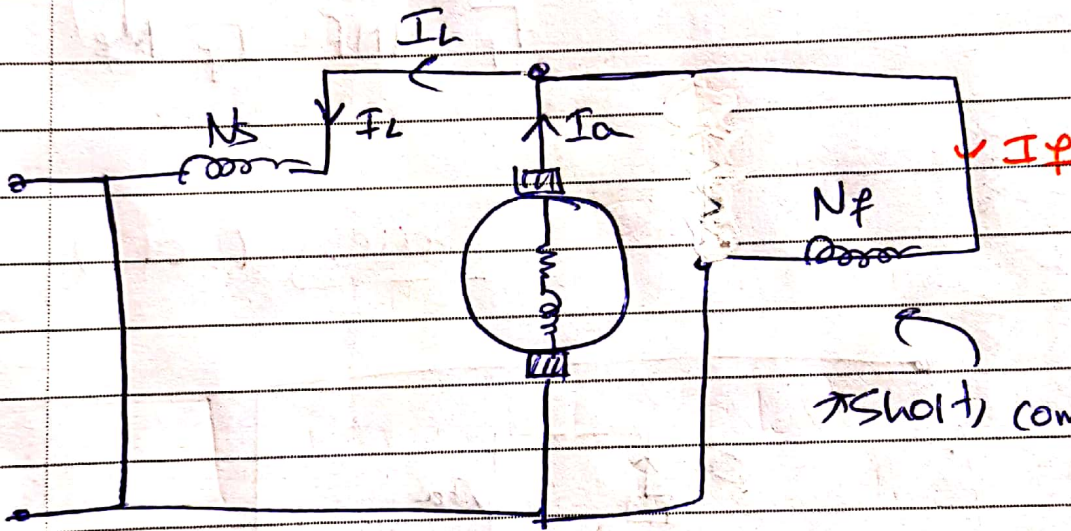 IL
Ns
IL
Ia
If
Nf
*Short, com